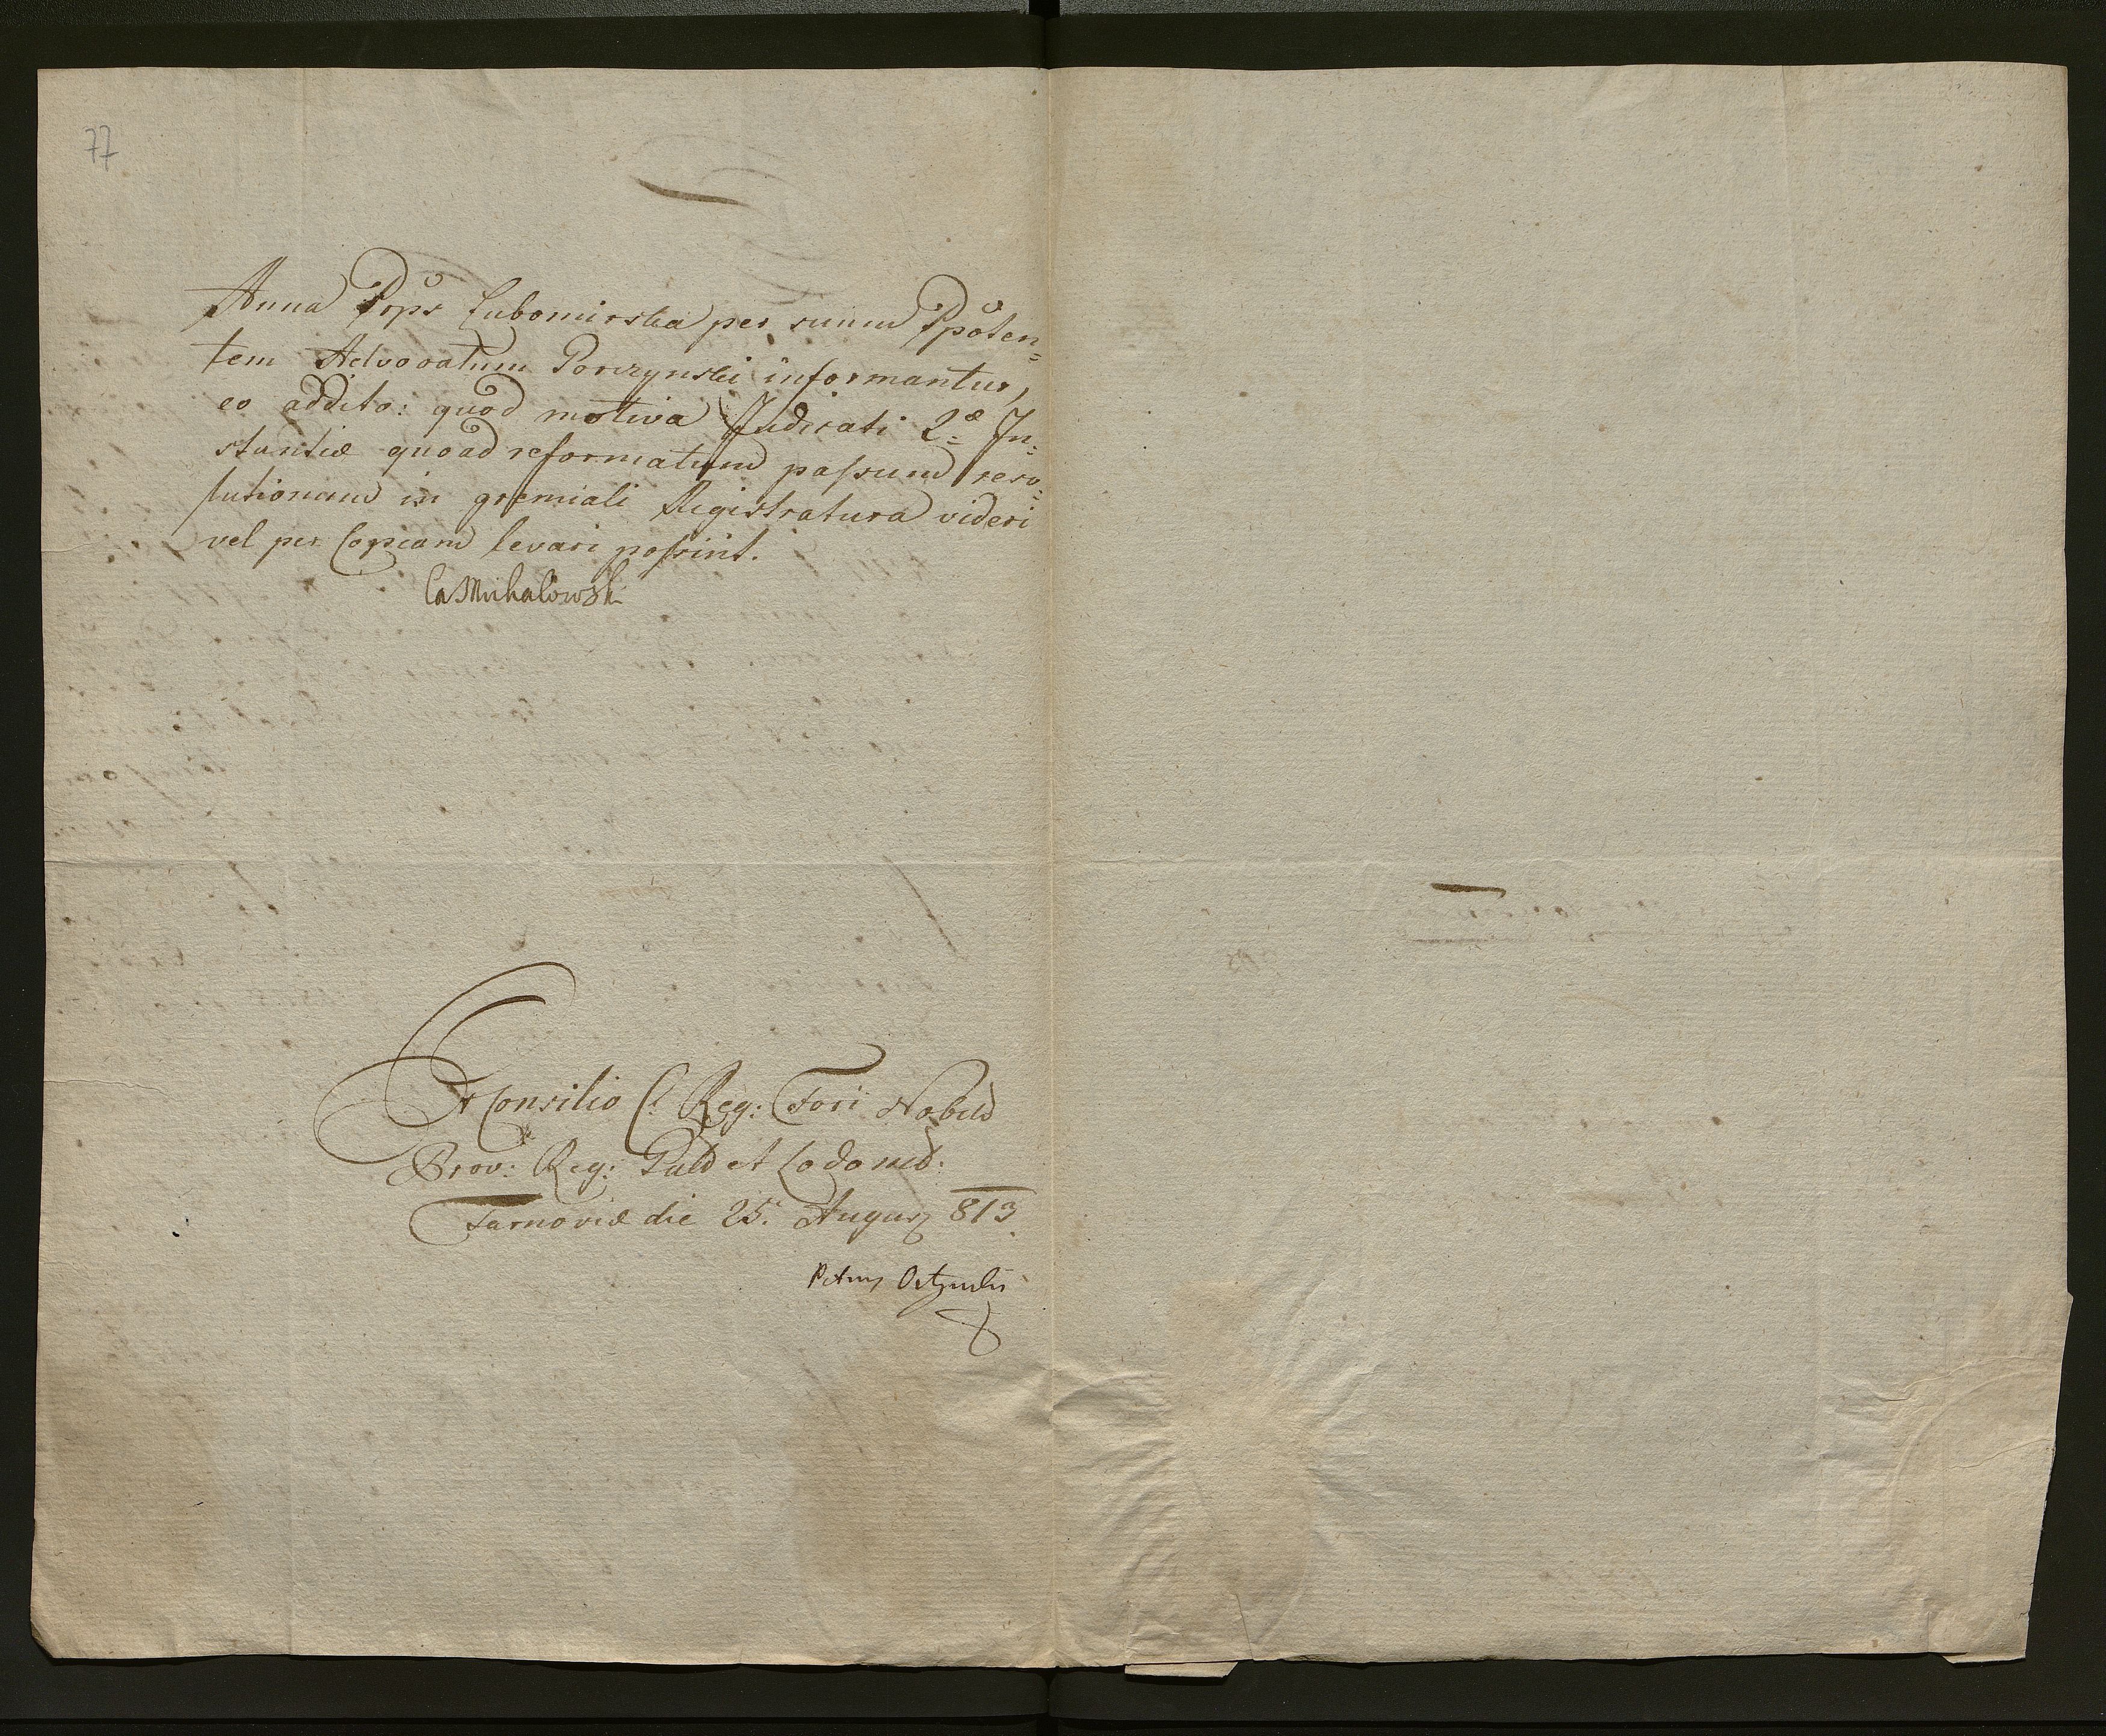 77
Anna Prps Lubomirska per suum Ppoten=
tem Advocatum Porczynski informantur,
eo addito: quod motiva Judicati 2æ In=
stantiæ quoad reformatum passum reso=
lutionum in gremiali Registratura videri
vel per Copiam levari possint.
CaMichalowski
A Consilio C. Reg: Fori Nobil
Prov: Reg: Galƌ et Lodomeƌ.
Tarnoviæ die 25. Augus 813.
Petrus